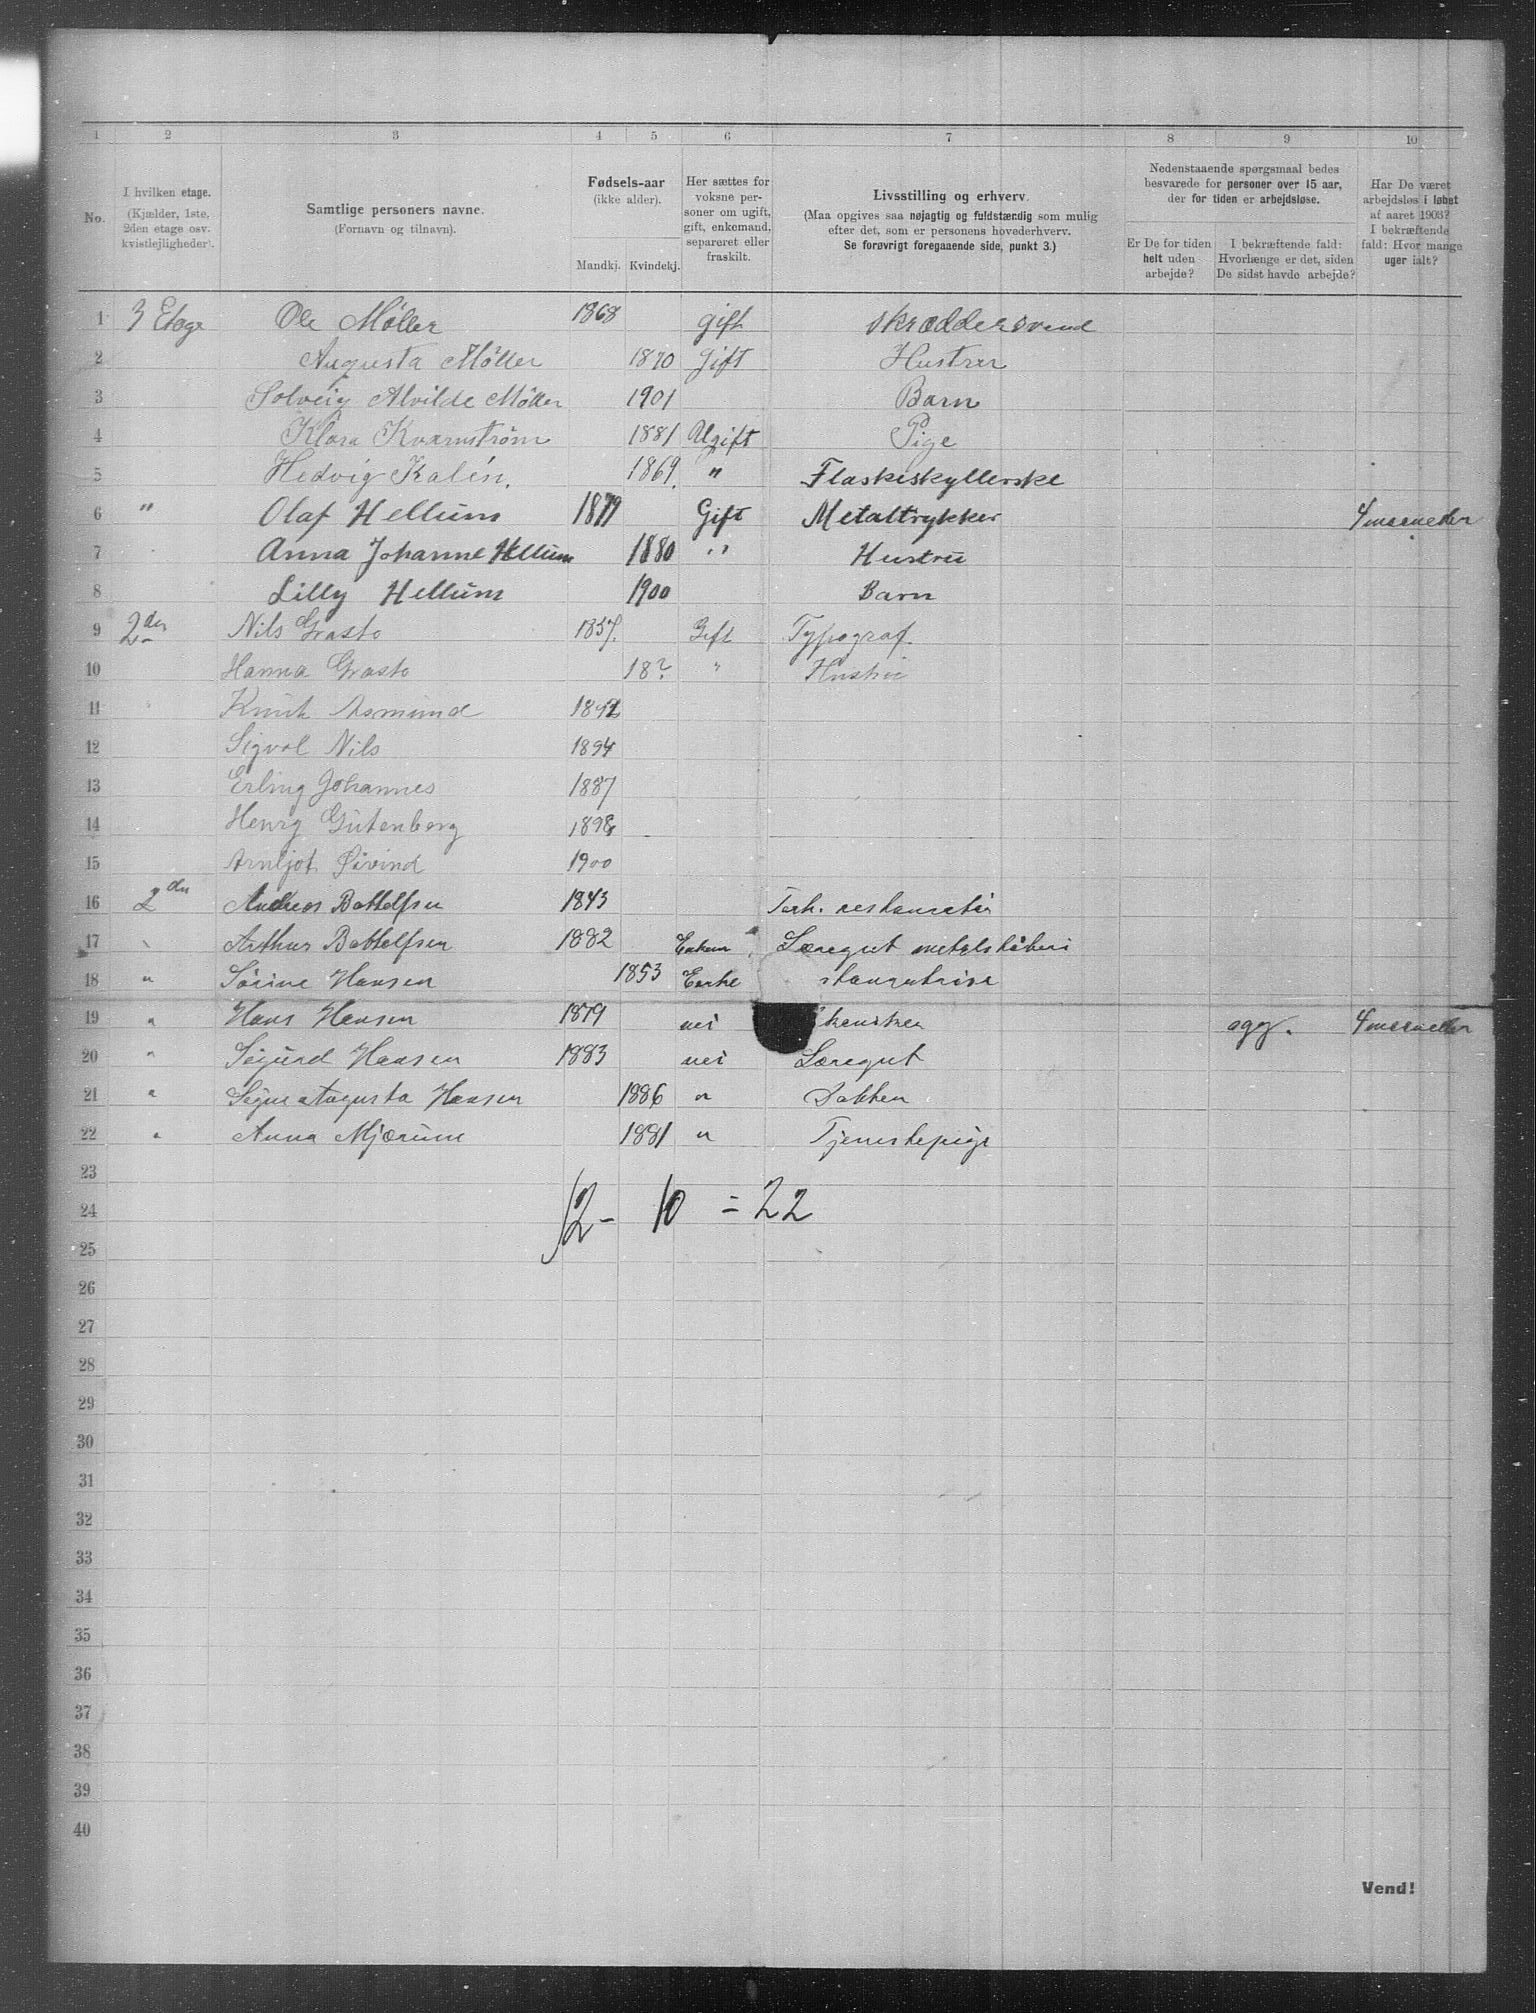 1 2 3 4 5 6 7 8 9 10
No.
I hvilken etage.
(Kjælder, 1ste,
2den etage osv.
kvistlejligheder).
Samtlige personers navne.
(Fornavn og tilnavn).
Fødsels-aar
(ikke alder).
Mandkj. Kvindekj.
Her sættes for
voksne per-
soner om ugift,
gift, enkemand,
separeret eller
fraskilt.
Livsstilling og erhverv.
(Maa opgives saa nøjagtig og fuldstændig som mulig
efter det, som er personens hovederhverv.
Se forøvrigt foregaaende side, punkt 3.)
Nedenstaaende spørgsmaal bedes
besvarede for personer over 15 aar,
der for tiden er arbejdsløse.
Er De for tiden
helt uden
arbejde?
I bekræftende fald:
Hvorlænge er det, siden
De sidst havde arbejde?
Har De været
arbejdsløs i løbet
af aaret 1903?
I bekræftende
fald: Hvor mange
uger ialt?
1 3 Etage Ole Möller 1868 gift skræddersvend
2 Augusta Möller 1870 Gift Hustru
3 Solveig Alvilde Möller 1901 Barn
4 Klara Kvarnström 1881 Ugift Pige
5 Hedvig Kalén. 1869. " Flaskeskyllerske
6 " Olaf Hellum 1879 Gift Metaltrykker 4 maaneder
7 Anna Johanne Hellum 1880 " Hustru
8 Lilly Hellum 1900 Barn
9 2den Nils Grasto 1857. Gift Typograf.
10 Hanna Grasto 18? " Hustru
11 Knut Asmund
12 Sigval Nils 1894
13 Erling Johannes 1887
14 Henry Gutenberg 1898
15 Arnljot Øivind 1900
16 2den Andreas Bottolfsen 1843 restauratør
17 " Arthur Bottolfsen 1882 Enkem Læregut
18 " Sørine Hansen 1853 Enke
19 " Hans Hansen 1879 nei 4 maaneder
20 " Sigurd Hansen 1883 nei Læregut
21 " Signe Augusta Hansen 1886 "
22 " Anna Mjærum 1881 " Tjenestepige
23
24 12 - 10 = 22
25
26
27
28
29
30
31
32
33
34
35
36
37
38
39
40
Vend!